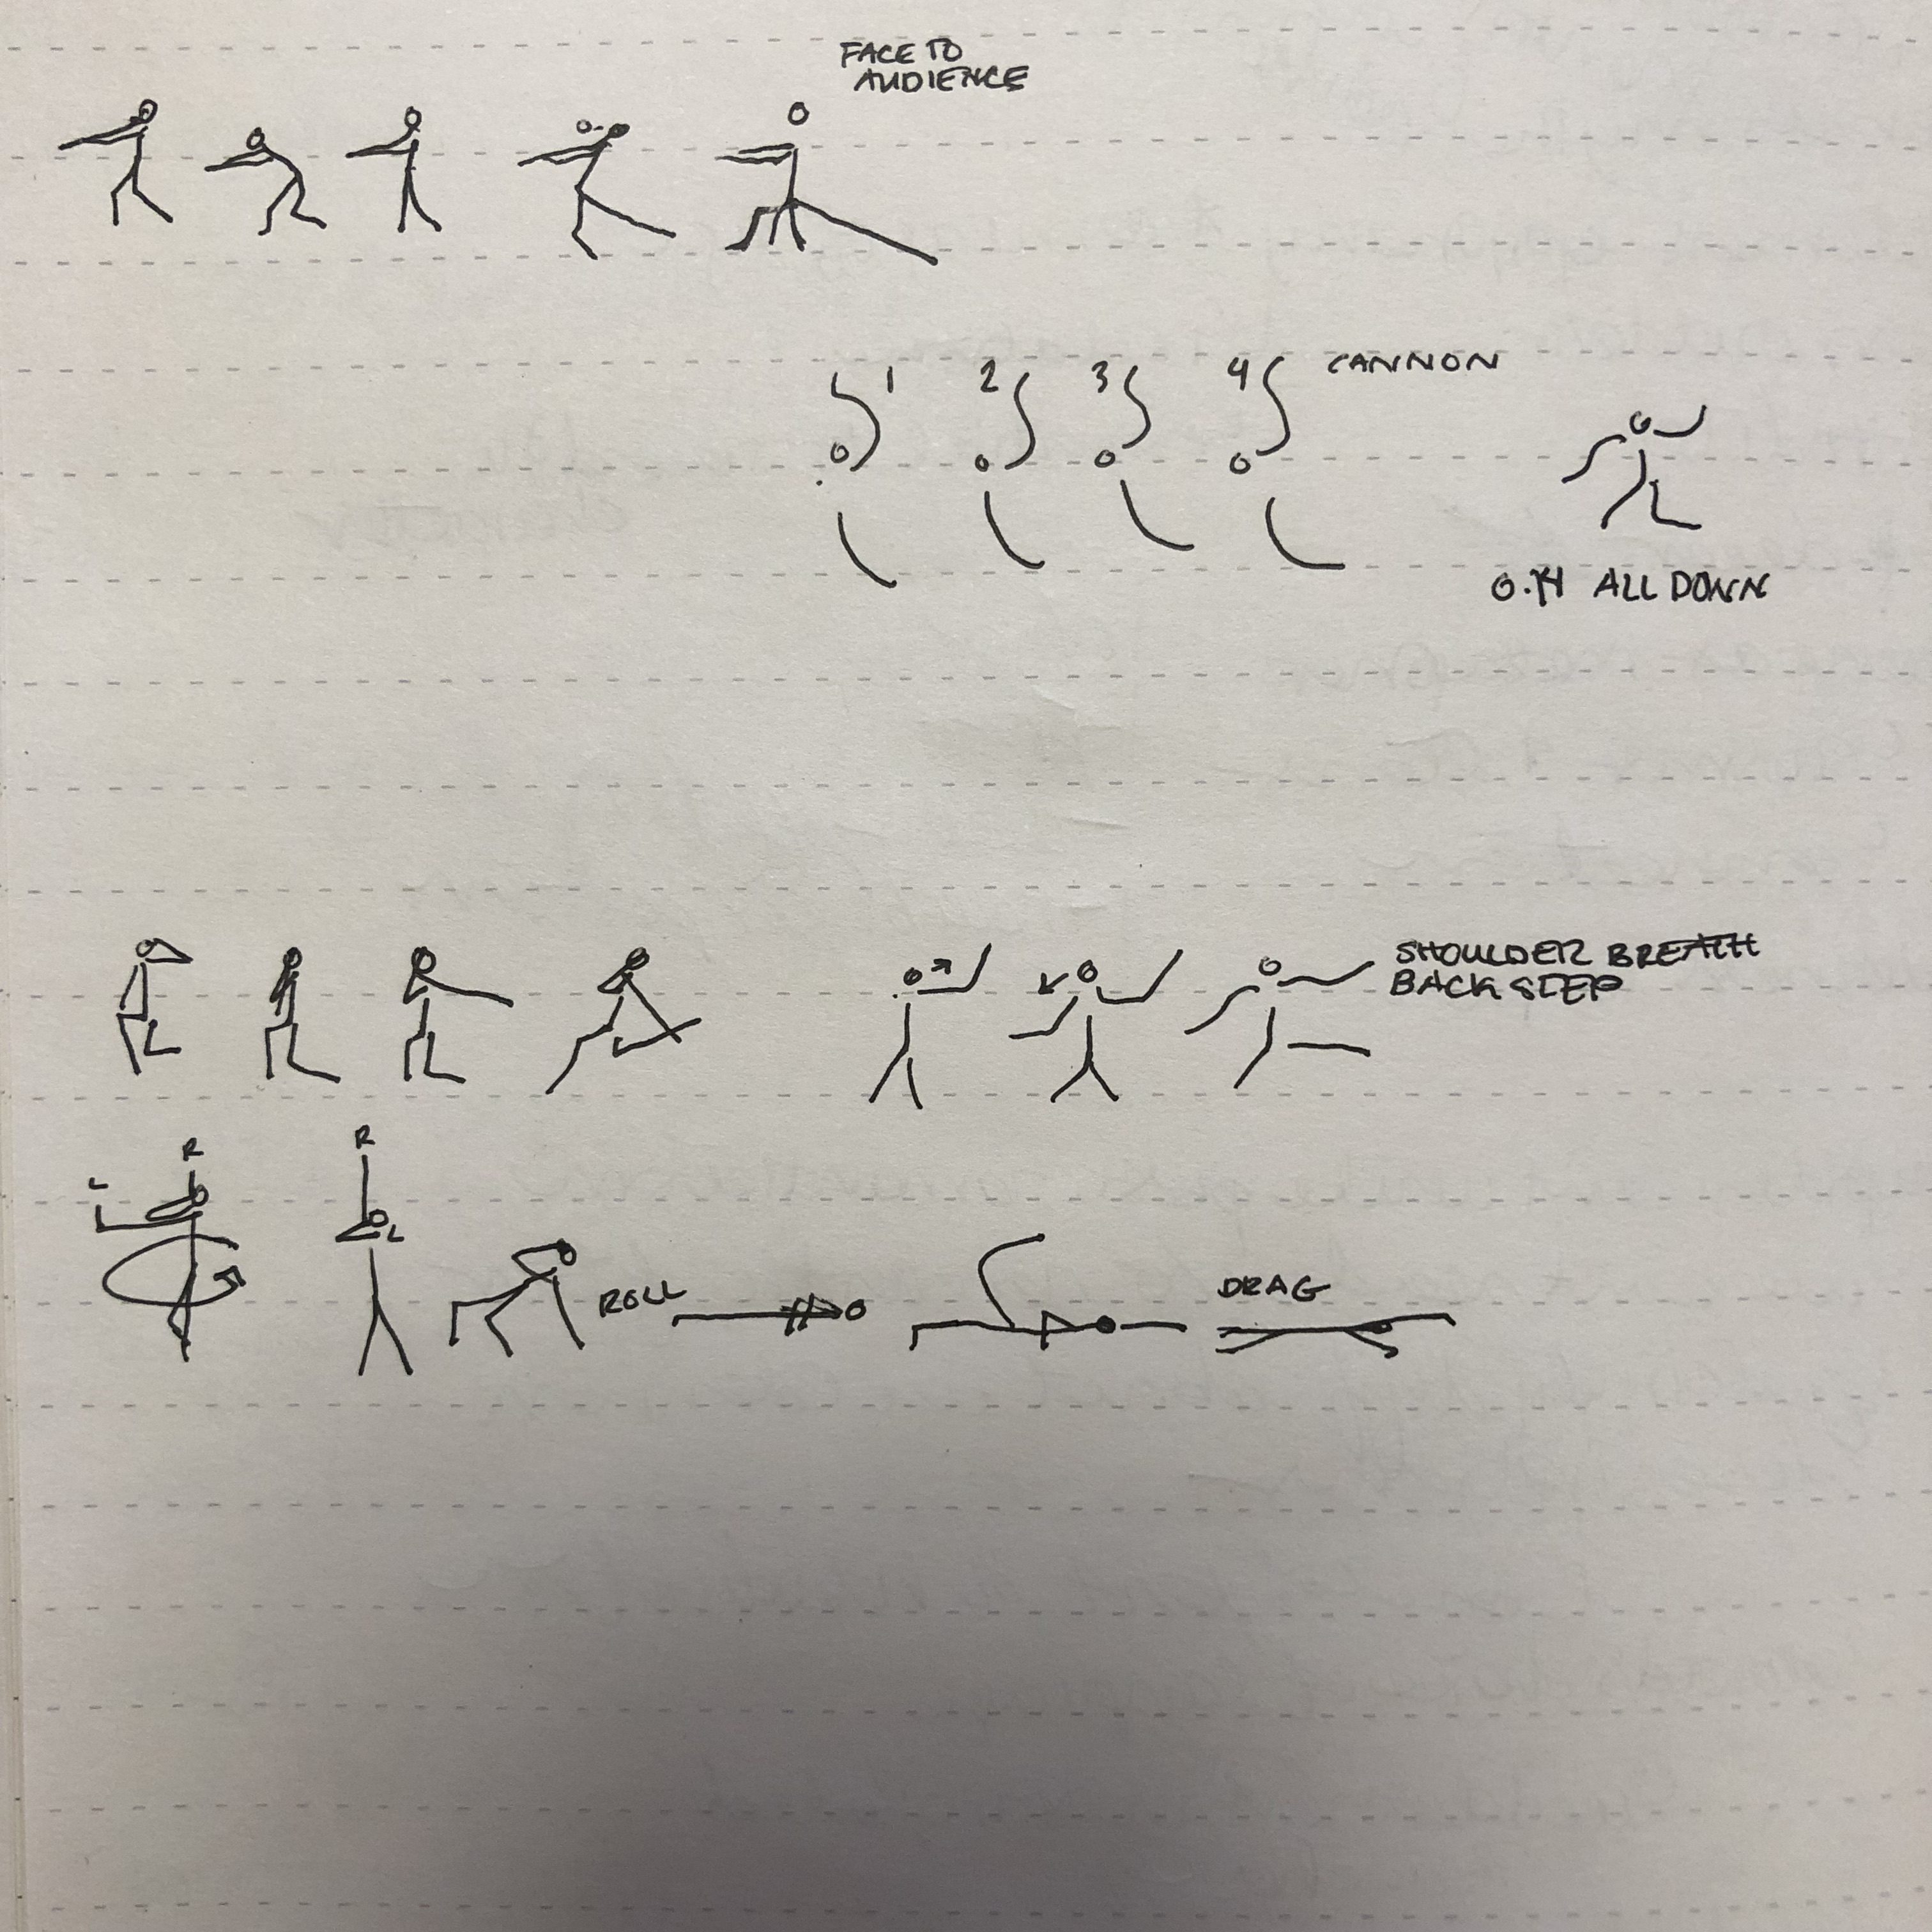 FACE TO
AUDIENCE
1 2 3 4 CANNON
ALL DOWN
SHOULDER BREATH
BACK STEP
R
R
L
L
ROLL
DRAG